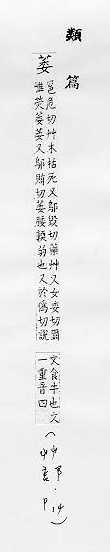 類篇
萎 邕危切艸木枯死又邬毀切藥艸又女委切
誰熒萎萎又邬賄切萎腇耎弱也又於偽切說
文食牛也文
一重音四
(艸部
中言.P.14)